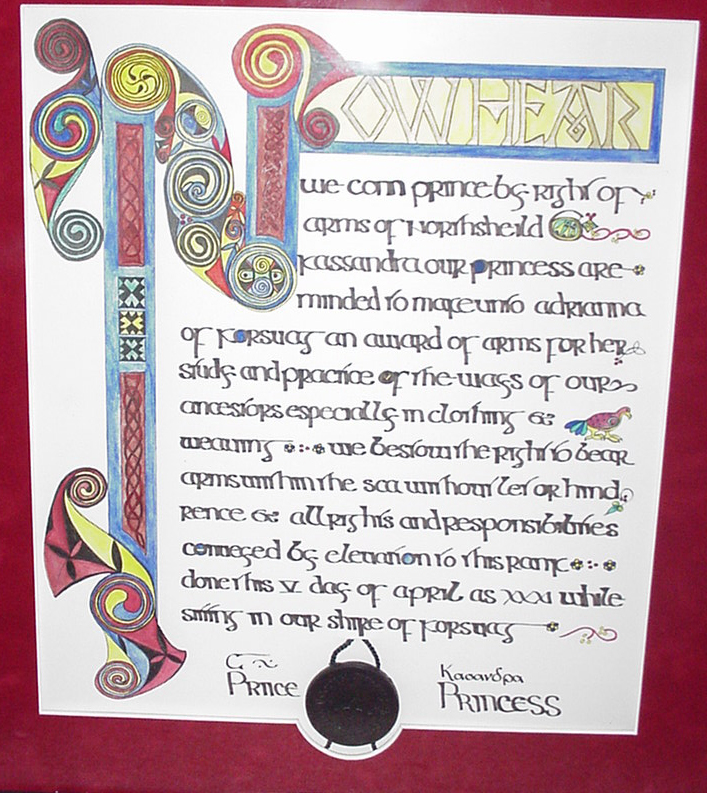 NOW HEAR
we conn prince by right of
arms of Northsheild &
kassandra our princess are
minded to make unto adrianna
of korsvag an award of arms for her
study and practice of the ways of our
ancestors especially in clothing &
weaving we bestow the right to bear
arms within the sca without let or hind
rence & all rights and responsibilities
conveyed by elevation to this rank
done this V day of april as xxxi while
sitting in our shire of korsvag
Prince
Κασανδρα
Princess